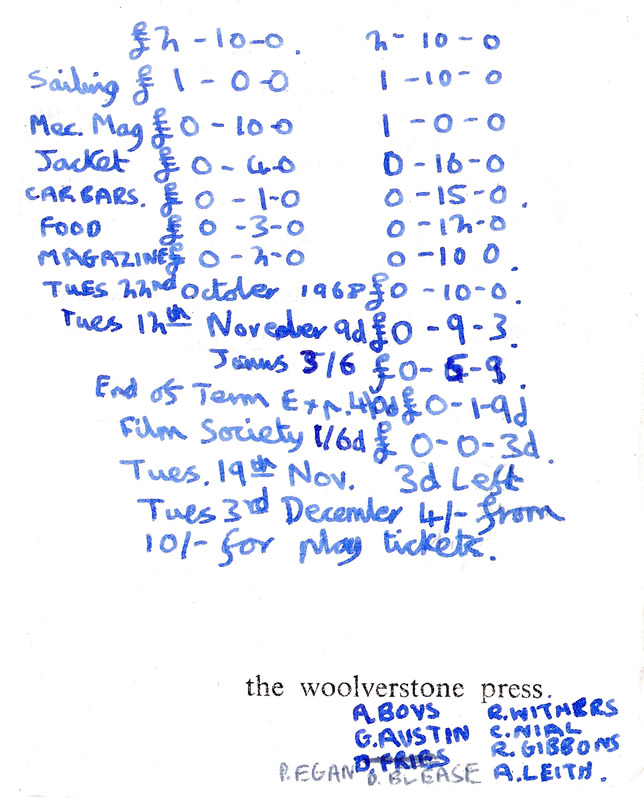 £2-10-0. 2-10-0
Sailing £1-0-0 1-10-0
Mec. Mag £0-10-0 1-0-0
Jacket £0-4-0 0-16-0
CARBARS. £0-1-0 0-15-0.
FOOD £0-3-0 0-12-0
MAGAZINE £0-2-0 0-10 0.
TUES 22nd October 1968 £0-10-0.
Tues 12th November 9d £0-9-3.
3/6 £0-5-9.
End of Term Exp. 4/0d £0-1-9d
Film Society 1/6d £0-0-3d.
Tues. 19th Nov. 3d Left
Tues 3rd December 4/- from
10/- for play tickets.
the woolverstone press.
A. BOYS R. WITHERS
G. AUSTIN C. NIAL
D. FRIES R. GIBBONS
P. EGAN D. BLEASE A. LEITH.